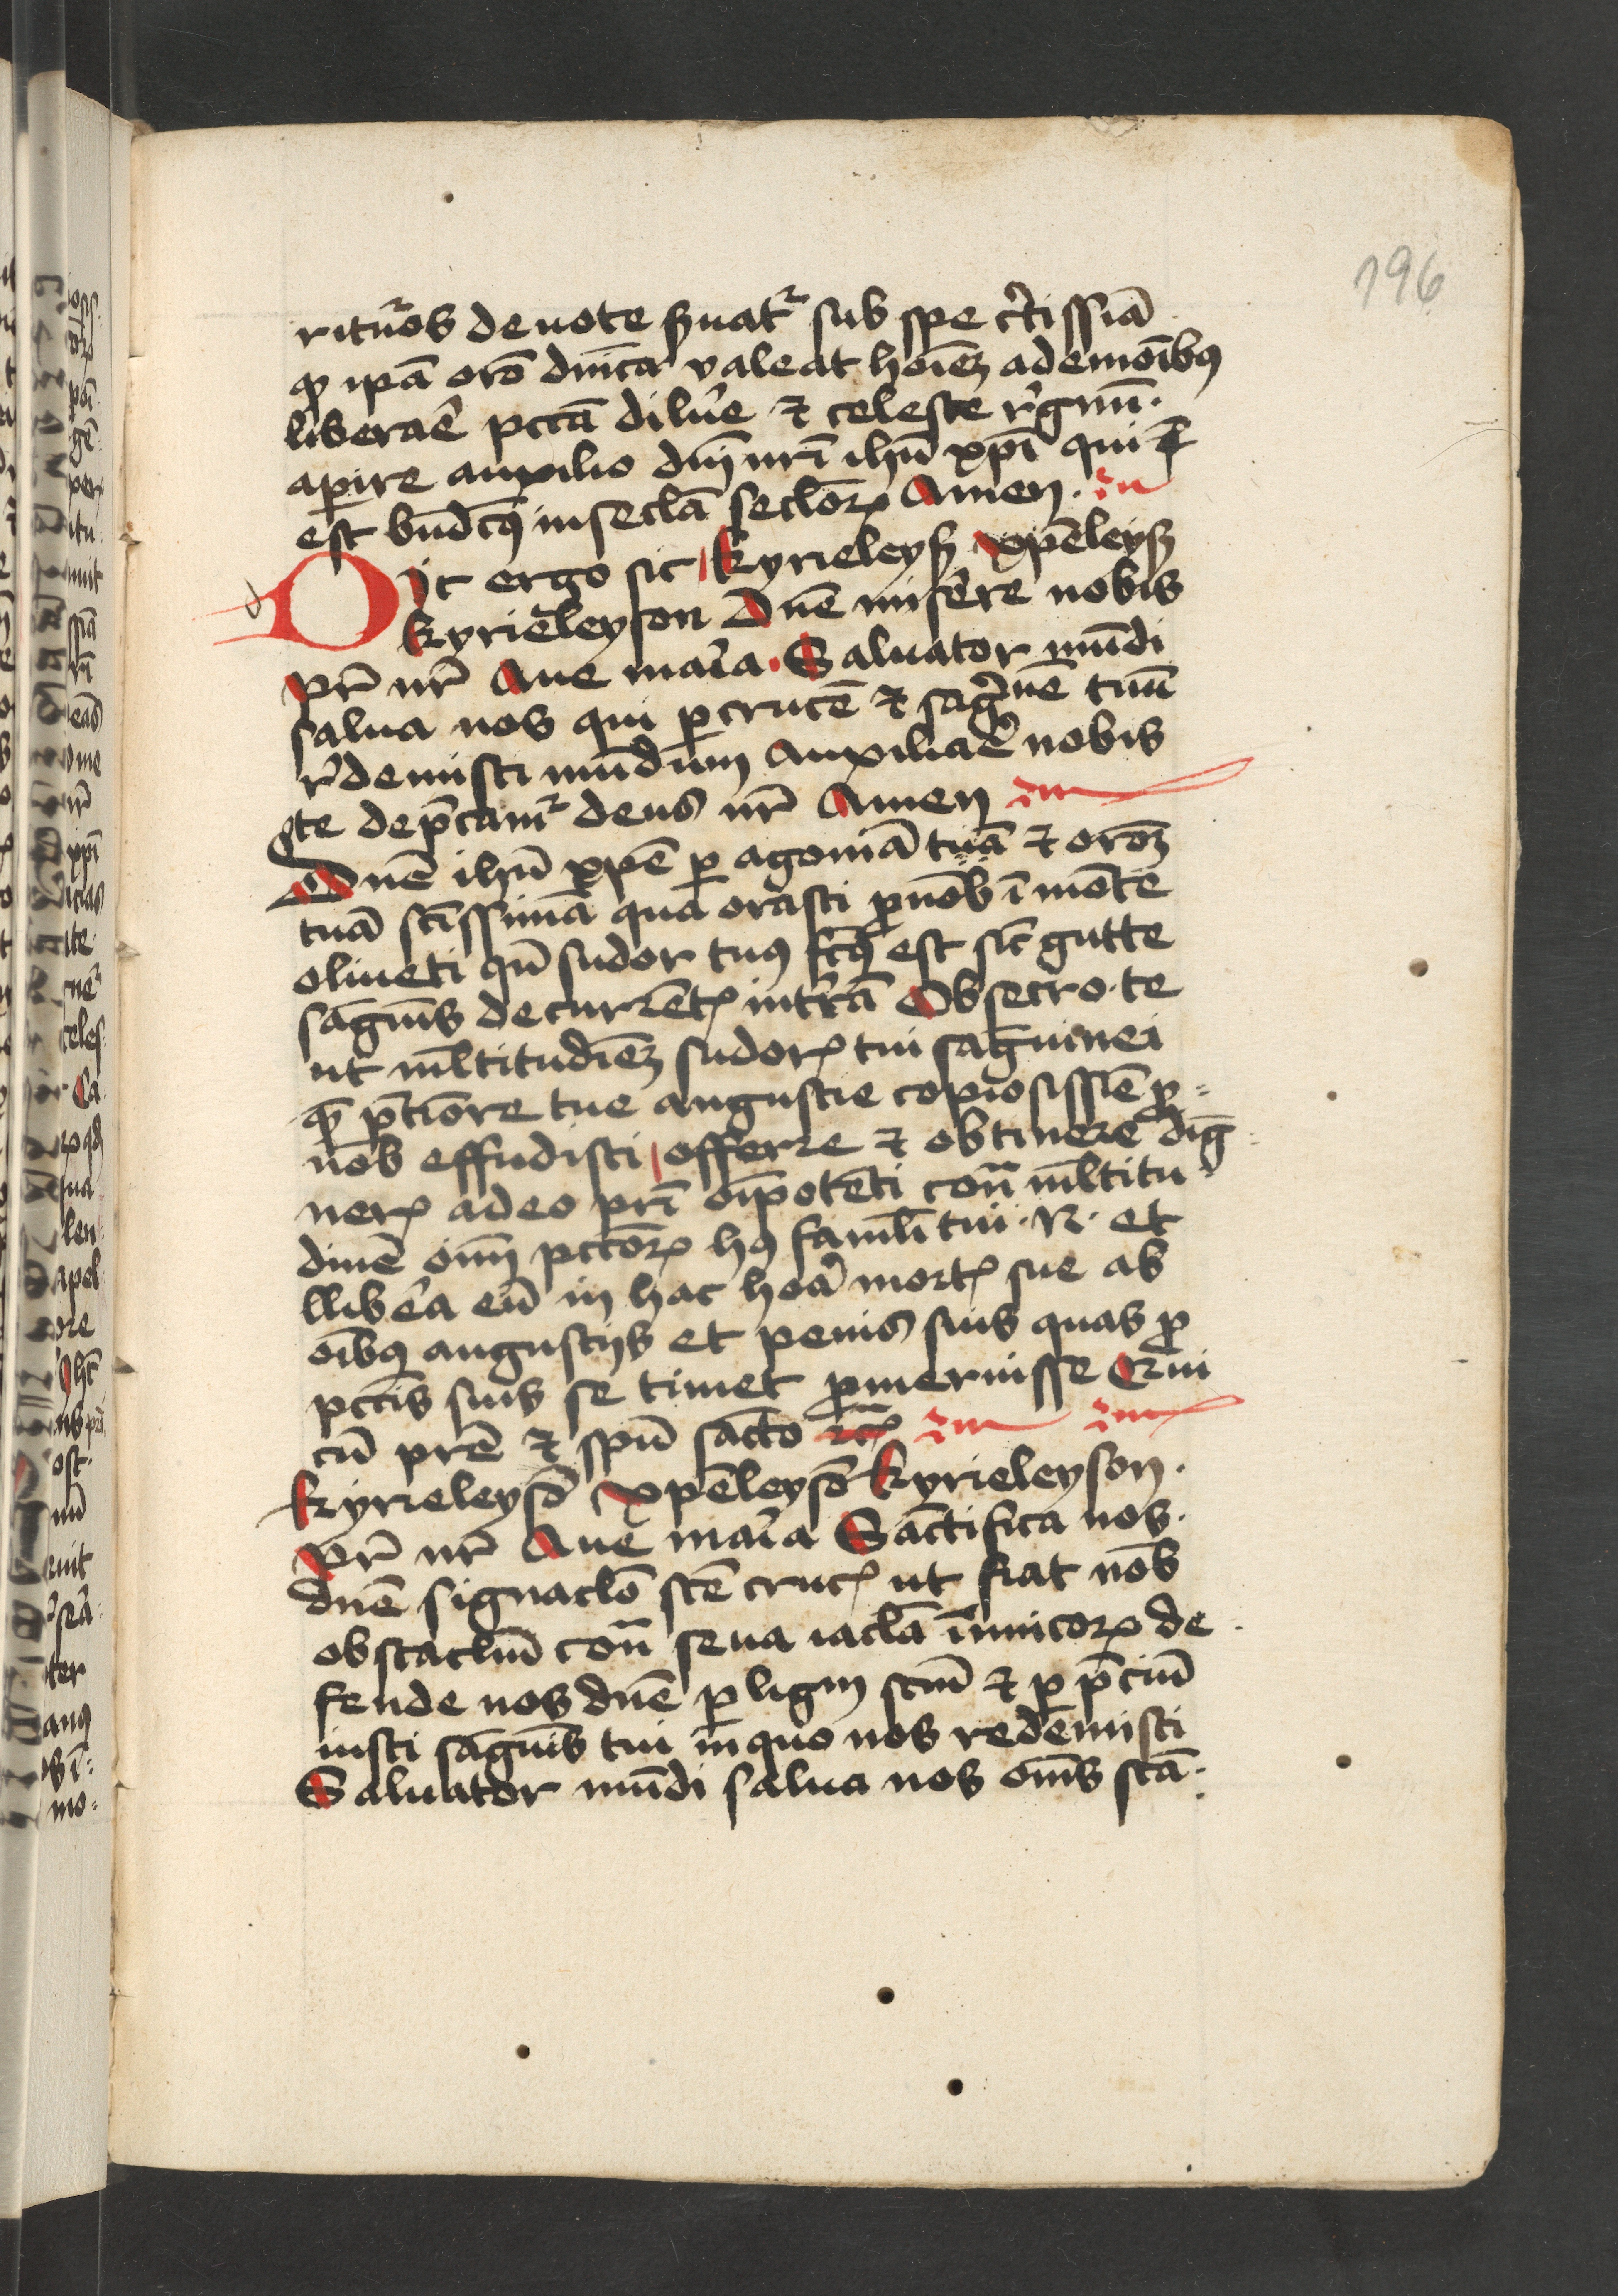 196
rituros deuote ẜuat᷑ sub spe c̓tissiā
ꝙ ip̄a or̄o dn̄ica valeat hoīeꝫ a demoībꝰ
liberaꝛ̄e pctā dilue̓ ⁊ celeste r̓gnū.
aꝑire auxilio dn̄i nr̄i ihū xp̄i qui
est bn̄dcꝰ in secl̄a secl̄oꝝ Amen.
Dic ergo sic kyrieleyß xp̄eleyß
kyrieleyson Dn̄e misere̓ nobis
Pr̄ nr̄ Aue mar̄ia. Saluator mūdi
salua nos qui ꝑ crucē ⁊ sāg̓nē tuū
r̓demisti mūdum Auxiliare̓ nobis
te dep̄cam᷑ deus nr̄ Amen
Dn̄e ihū xp̄e ꝑ agoniā tuā ⁊ or̄oꝫ
tuā sc̄issimā qua orasti ꝓ nob̄ ī mōte
oliueti qn̄ sudor tuꝰ fc̄ꝰ est sic̄ gutte
sāgnis decurrētꝭ in t̓rā Obsecro te
ut ml̄titudīeꝫ sudorꝭ tui sāguinei
qᷓ p̄ timore tue angustie copiosissīe ꝓ
nob̄ effudisti / offerre ⁊ obtinere diḡ
nerꝭ a deo pr̄i oīpotēti cont̄ ml̄titu
dinē oīm pctōꝝ hꝰ famli̅ tui. N. et
llibe̓a eū in hac hoa̓ mortꝭ sue ab
oībꝰ angustijs et penis suis quas ꝓ
pctīs suis se timet ꝓmeruisse Qui
cū prē ⁊ spū sāto
kyrieleysō xp̄eleysō kyrieleyson.
Pr̄ nr̄ Aue mar̄ia Sāctifica nos.
dn̄e signaclō sc̄e crucꝭ ut fiat nob̄
obstaclm̄ cont̄ seua iacl̄a īimicoꝝ de
fende nos dn̄e ꝑ lignū scm̄ ⁊ ꝑ p̄ciū
iusti sāgnis tui in quo nos redemisti
Saluator mūdi salua nos om̄s sc̄a.